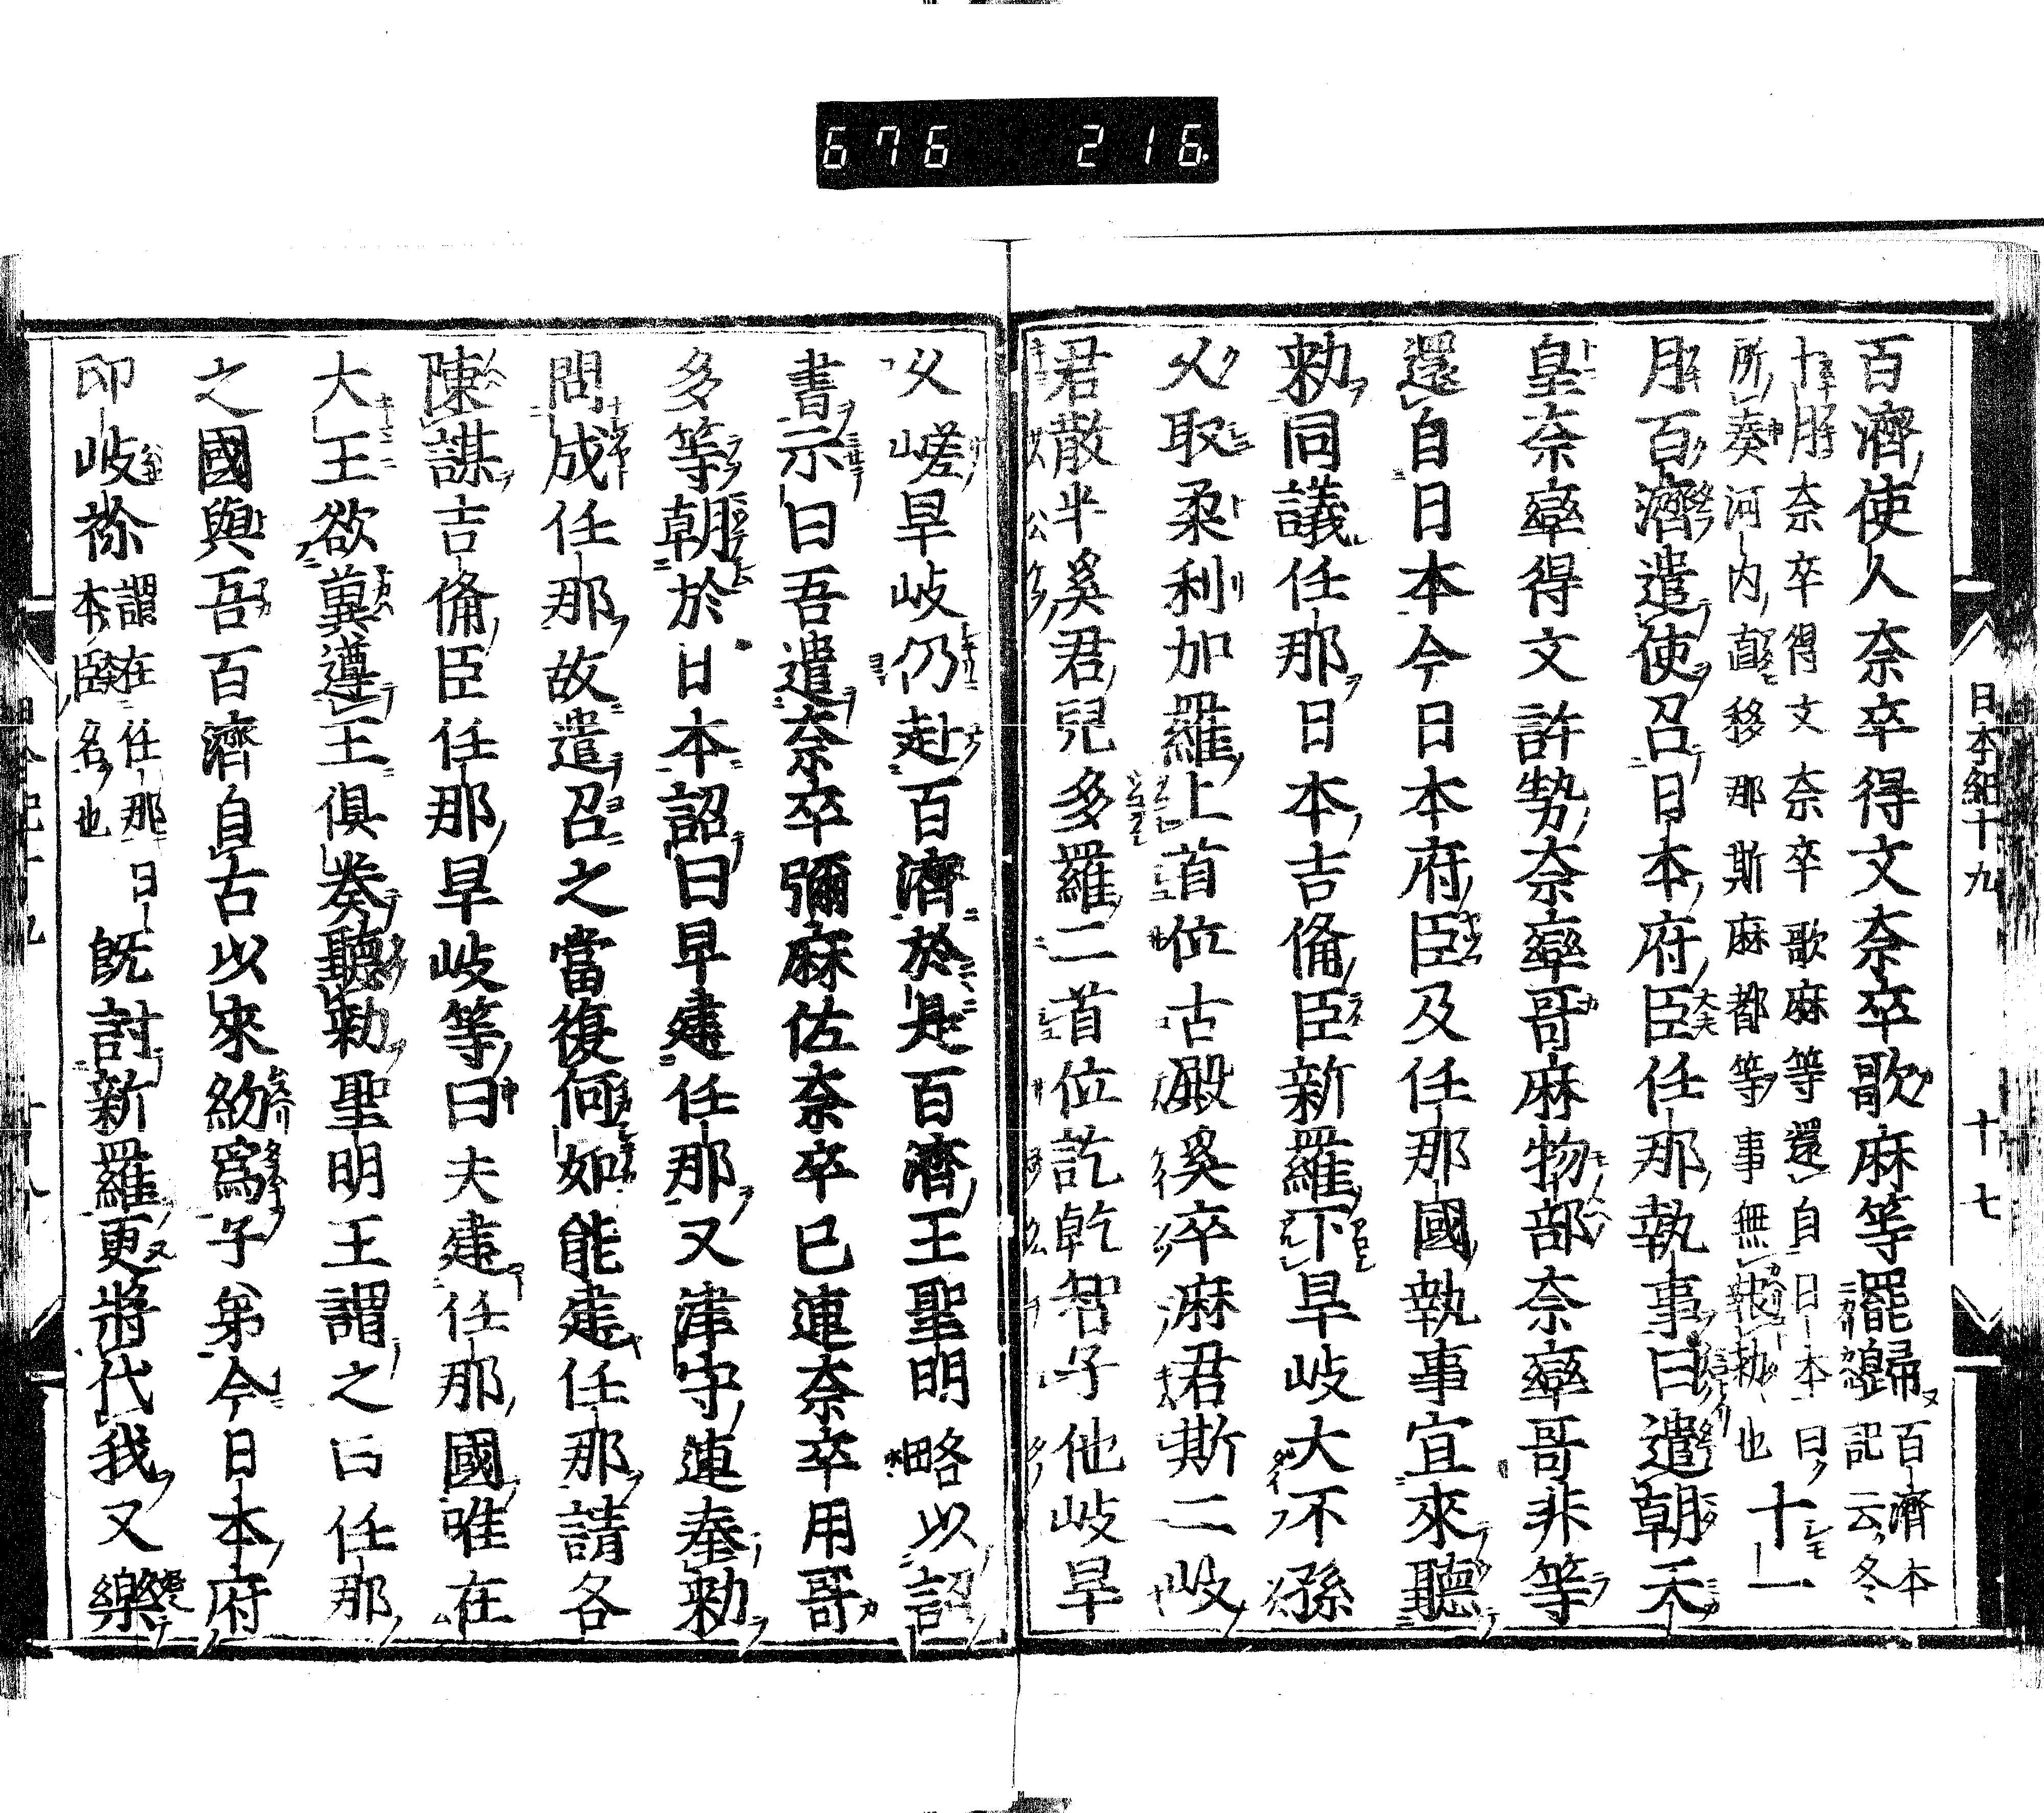 676 216
百濟使人奈卒得文奈卒歌麻等罷歸百濟本記云冬
十月奈卒得文奈卒歌麻等還自日本曰
所奏河内直移那斯麻都等事無報勅也十一
月百濟遣使召日本府臣任那執事曰遣朝天
皇奈率得文許勢奈率哥麻物部奈率哥非等
還自日本今日本府臣及任那國執事宜來聽
勅同議任那日本吉備臣新羅下旱岐大不孫
久取柔利加羅上首位古殿奚卒麻君斯二岐
君散半奚君兒多羅二首位訖乾智子他岐旱
日本紀十九 十七
久嵯旱岐仍赴百濟於是百濟王聖明略以詔
書示曰吾遣奈卒彌麻佐奈卒已連奈卒用哥
多等朝於日本詔曰早建任那又津守連奉勅
問成任那故遣召之當復何如能建任那請各
陳謀吉備臣任那旱岐等曰夫建任那國唯在
大王欲冀遵王俱奏聽勅聖明王謂之曰任那
之國與吾百濟自古以來約爲子弟今日本府
印岐祢謂在任那日本臣名也既討新羅更將代我又樂